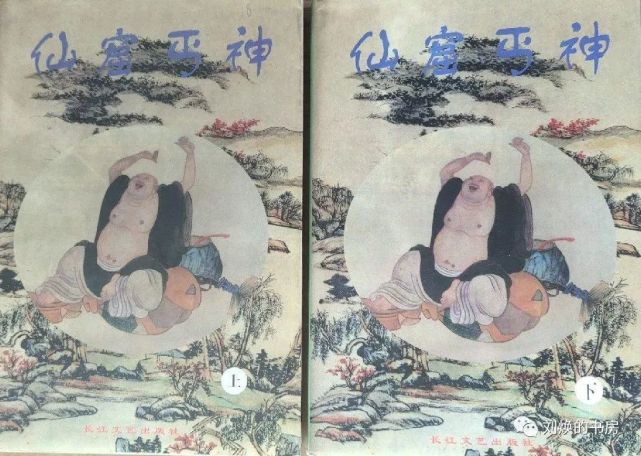 仙窟丐神
上
长江文艺出版社
仙窟丐神
下
长江文艺出版社
刘焕的书房